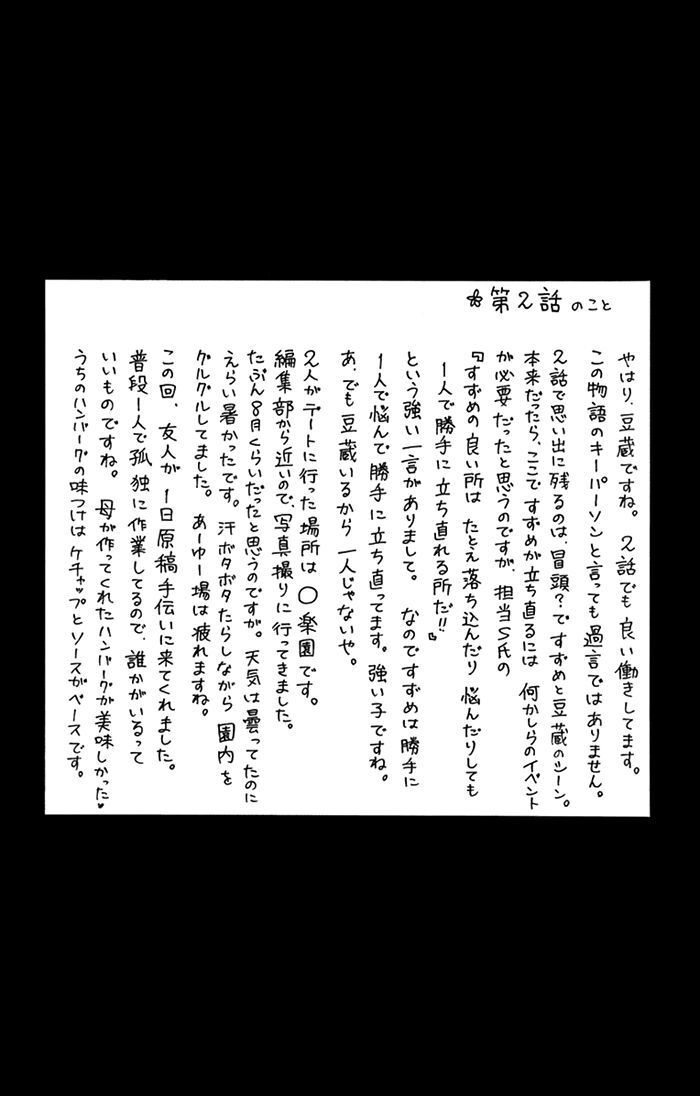 ☆第2話のこと
やはり、豆蔵ですね。 2話でも良い働きしてます。
この物語のキーパーソンと言っても過言ではありません。
2話で思い出に残るのは、冒頭？ですずめと豆蔵のシーン。
本来だったら、ここですずめが立ち直るには 何かしらのイベント
が必要だったと思うのですが、担当S氏の
『すずめの良い所は たとえ落ち込んだり 悩んだりしても
1人で勝手に立ち直れる所だ!!』
という強い一言がありまして。 なのですずめは勝手に
1人で悩んで勝手に立ち直ってます。強い子ですね。
あ、でも豆蔵いるから 一人じゃないや。
2人がデートに行った場所は ○楽園です。
編集部から近いので、写真撮りに行ってきました。
たぶん8月くらいだったと思うのですが。天気は曇ってたのに
えらい暑かったです。汗ボタボタたらしながら 園内を
グルグルしてました。 あーゆー場は疲れますね。
この回、友人が 1日原稿手伝いに来てくれました。
普段1人で孤独に作業してるので、誰かがいるって
いいものですね。 母が作ってくれたハンバーグが美味しかった♥
うちのハンバーグの味つけは ケチャップとソースがベースです。